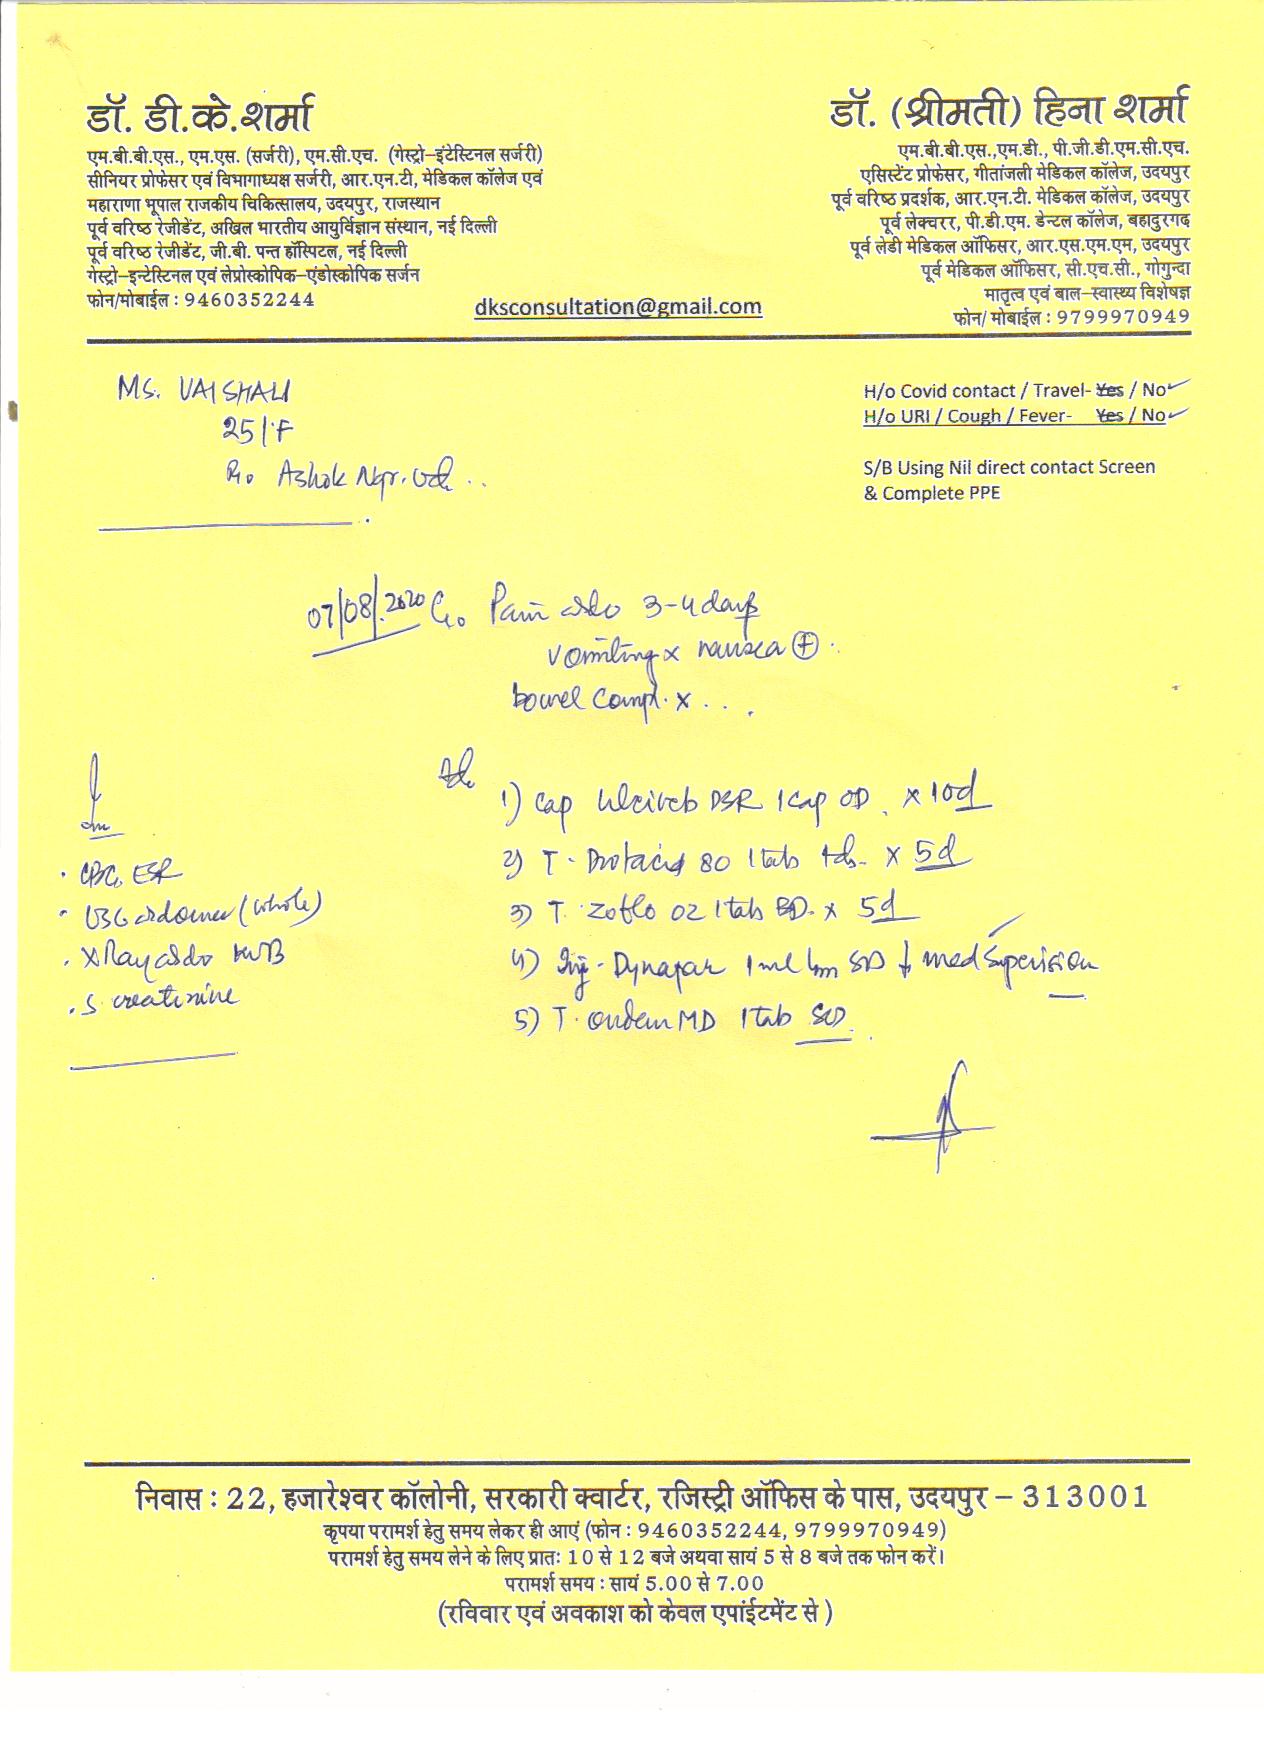 डॉ. डी.के.शर्मा
एम.बी.बी.एस., एम.एस. (सर्जरी), एम.सी.एच. (गेस्ट्रो-इंटेस्टिनल सर्जरी)
सीनियर प्रोफेसर एवं विभागाध्यक्ष सर्जरी, आर.एन.टी, मेडिकल कॉलेज एवं
महाराणा भूपाल राजकीय चिकित्सालय, उदयपुर, राजस्थान
पूर्व वरिष्ठ रेजीडेंट, अखिल भारतीय आयुर्विज्ञान संस्थान, नई दिल्ली
पूर्व वरिष्ठ रेजीडेंट, जी.बी. पन्त हॉस्पिटल, नई दिल्ली
गेस्ट्रो-इन्टेस्टिनल एवं लेप्रोस्कोपिक-एंडोस्कोपिक सर्जन
फोन/मोबाईल : 9460352244
dksconsultation@gmail.com
डॉ. (श्रीमती) हिना शर्मा
एम.बी.बी.एस.,एम.डी., पी.जी.डी.एम.सी.एच.
एसिस्टेंट प्रोफेसर, गीतांजली मेडिकल कॉलेज, उदयपुर
पूर्व वरिष्ठ प्रदर्शक, आर.एन.टी. मेडिकल कॉलेज, उदयपुर
पूर्व लेक्चरर, पी.डी.एम. डेन्टल कॉलेज, बहादुरगढ
पूर्व लेडी मेडिकल ऑफिसर, आर.एस.एम.एम, उदयपुर
पूर्व मेडिकल ऑफिसर, सी.एच.सी., गोगुन्दा
मातृत्व एवं बाल-स्वास्थ्य विशेषज्ञ
फोन/ मोबाईल : 9799970949
MS. VAISHALI
25/F
R/o Ashok Ngr. Ud
H/o Covid contact / Travel- Yes / No
H/o URI / Cough / Fever- Yes / No
S/B Using Nil direct contact Screen
& Complete PPE
07/08/.2020 C/o Pain abdo 3-4 days
vomiting x nausea ⊕
bowel Compl. x . . .
Adv
1) Cap DSR 1 cap OD. x 10d
2) T. Drotacid 80 1 tab tds x 5d
3) T. Zoflo 02 1 tab BD x 5d
4) Inj. Dynapar 1 ml Im med supervision
5) T. ondem MD 1 tab
. CBC, ESR
. USG abdomen (whole)
. X Ray abdo KUB
. S creatinine
निवास : 22, हजारेश्वर कॉलोनी, सरकारी क्वार्टर, रजिस्ट्री ऑफिस के पास, उदयपुर – 313001
कृपया परामर्श हेतु समय लेकर ही आएं (फोन : 9460352244, 9799970949)
परामर्श हेतु समय लेने के लिए प्रातः 10 से 12 बजे अथवा सायं 5 से 8 बजे तक फोन करें।
परामर्श समय : सायं 5.00 से 7.00
(रविवार एवं अवकाश को केवल एपांईटमेंट से )